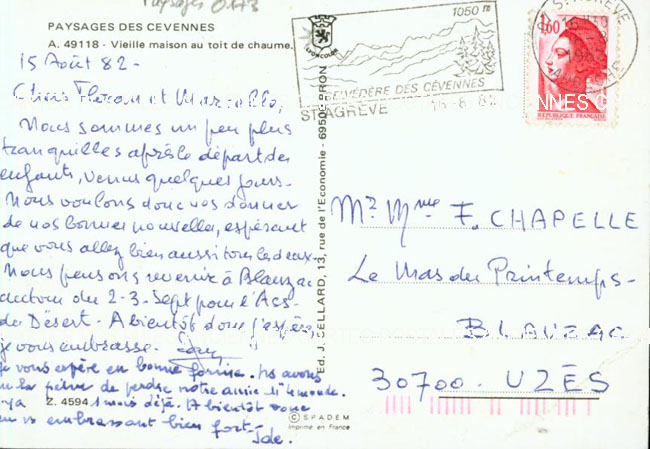 Paysages
PAYSAGES DES CEVENNES
A. 49118 - Vieille maison au toit de chaume.
15 Août 82 -
Chers et Marcelle,
Nous sommes un peu plus
tranquilles après le départ des
enfants, venus quelques jours.
Nous voulons donc vous donner
de nos bonnes nouvelles, espérant
que vous allez bien aussi tous les deux.
Nous pensons revenir à Blauzac
autour du 2-3 Sept pour l'Ass.
du Désert. A bientôt donc j'espère,
je vous embrasse.
je vous espère en bonne forme. Ns avons
eu la peine de perdre notre amie
1 mois déjà. A bientôt donc
en vs embrassant bien fort -
Z. 4594
Ed. CELLARD, 13, rue de l'Economie - 69500 BRON
LYONCOLOR
1050 m
BELVÉDÈRE DES CÉVENNES
ST AGRÈVE 16-8 82
ST AGRÈVE
ARDECHE
1,60
REPUBLIQUE FRANÇAISE
Mr Mme F. CHAPELLE
Le Mas du Printemps -
BLAUZAC
30700 - UZÈS
© SPADEM
Imprimé en France